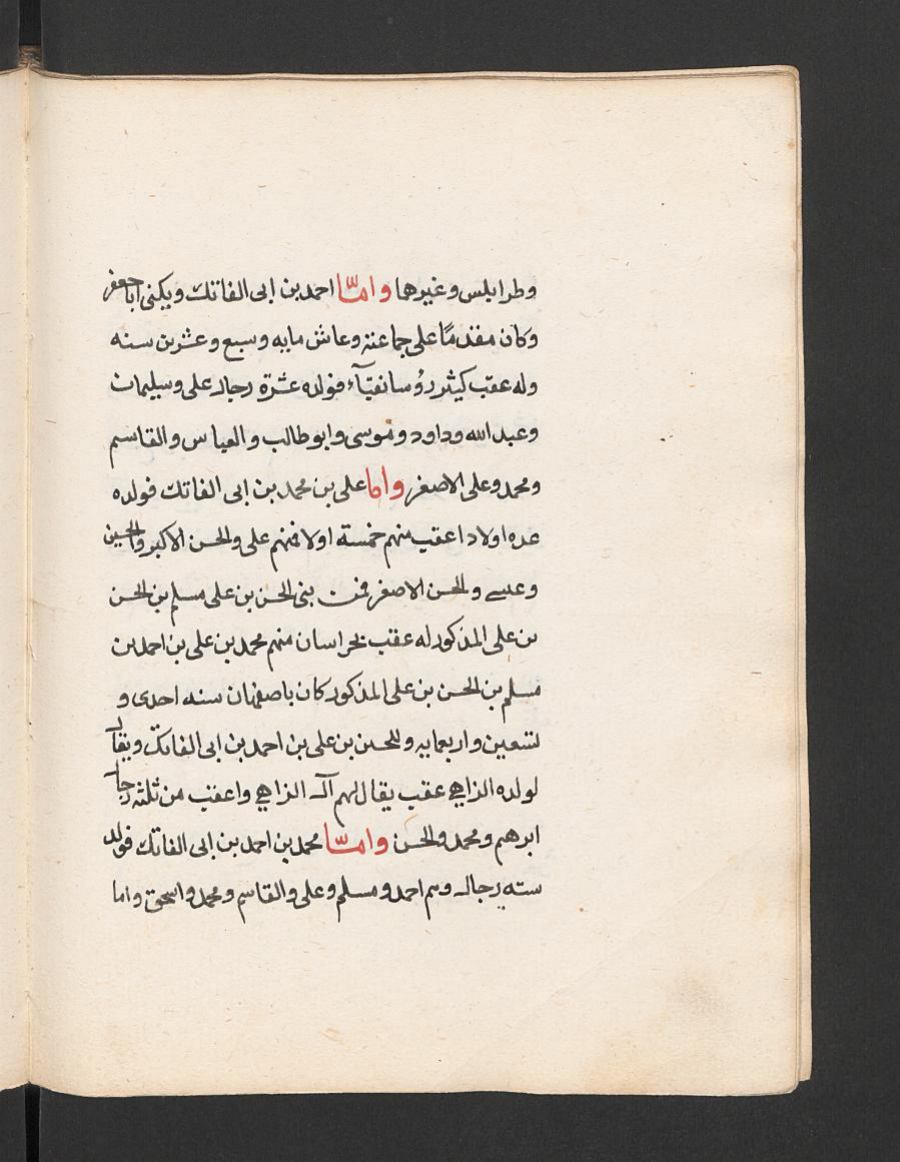 وطرابلس وغيرهما وامّا احمد بن ابى الفاتك ويكنى ابا جعفر
وكان مقدمًا على جماعته وعاش مايه وسبع وعشرين سنه
وله عقب كيثر رؤسا نقبآء فولده عشرة رجال على وسليمان
وعبد الله وداود وموسى وابو طالب والعباس والقاسم
ومحمد وعلى الاصغر واما على بن محمد بن ابى الفاتك فولده
عده اولاد اعقب منهم خمسة اولاد منهم على والحسن الاكبر والحسين
وعيسى والحسن الاصغر فمن بنى الحسن بن على مسلم بن الحسن
بن على المذكور له عقب بخراسان منهم محمد بن على بن احمد بن
مسلم بن الحسن بن على المذكور كان باصفهان سنه احدى و
تسعين واربعمايه وللحسن بن على بن احمد بن ابى الفاتك ويقال
لولده الزاهى عقب يقال لهم آل الزاهى واعقب من ثلثه رجال
ابرهيم ومحمد والحسن وامّا محمد بن احمد بن ابى الفاتك فولد
سته رجال وهم احمد ومسلم وعلى والقاسم ومحمد واسحق واما